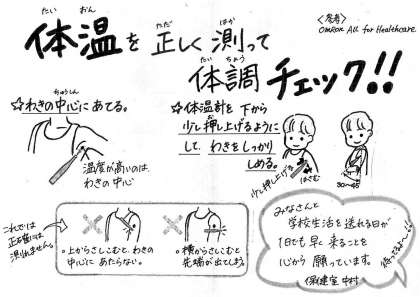 体温を正しく測って
たい おん ただ はか
<参考>
OMRON All for Healthcare
体調チェック!!
たい ちょう
☆わきの中心にあてる。
ちゅうしん
温度が高いのは、
わきの中心
☆体温計を下から
少し押し上げるように
して、わきをしっかり
しめる。
少し押し上げる
はさむ
30~45°
これでは
正確には
測れません。
・上からさしこむと、わきの
中心に あたらない。
・横からさしこむと
先端が出てしまう。
みなさんと
学校生活を送れる日が
1日でも早く来ることを
心から願っています。
保健室 中村
待ってまーす!